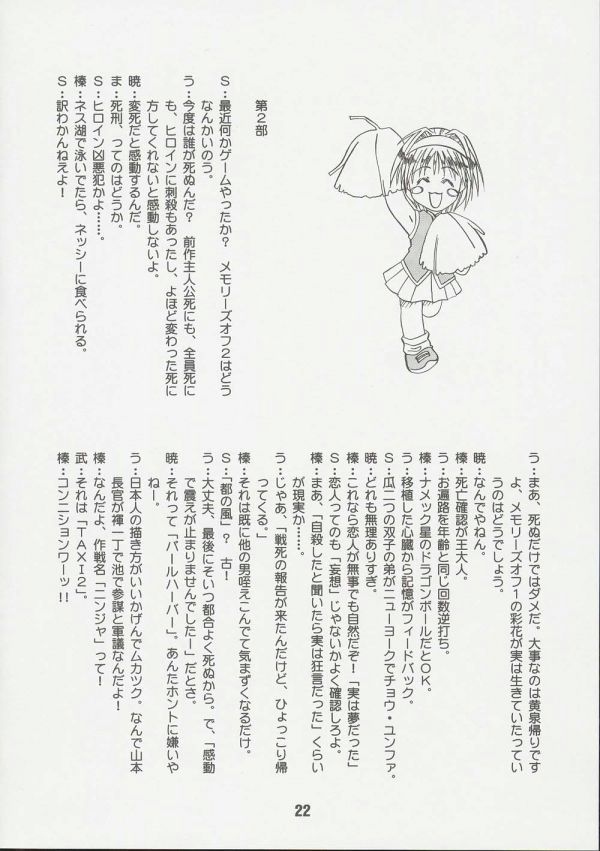 第２部
Ｓ：最近何かゲームやったか？　メモリーズオフ２はどう
なんかいのう。
う：今度は誰が死ぬんだ？　前作主人公死にも、全員死に
も、ヒロインに刺殺もあったし、よほど変わった死に
方してくれないと感動しないよ。
暁：変死だと感動するんだ。
ま：死刑、ってのはどうか。
Ｓ：ヒロイン凶悪犯かよ……。
榛：ネス湖で泳いでたら、ネッシーに食べられる。
Ｓ：訳わかんねえよ！
う：まあ、死ぬだけではダメだ。大事なのは黄泉帰りです
よ、メモリーズオフ１の彩花が実は生きていたってい
うのはどうでしょう。
暁：なんでやねん。
榛：死亡確認が王大人。
う：お遍路を年齢と同じ回数逆打ち。
榛：ナメック星のドラゴンボールだとＯＫ。
う：移植した心臓から記憶がフィードバック。
Ｓ：瓜二つの双子の弟がニューヨークでチョウ・ユンファ。
暁：どれも無理ありすぎ。
榛：これなら恋人が無事でも自然だぞ！「実は夢だった」
Ｓ：恋人ってのも「妄想」じゃないかよく確認しろよ。
榛：まあ、「自殺したと聞いたら実は狂言だった」くらい
が現実か……。
う：じゃあ、「戦死の報告が来たんだけど、ひょっこり帰
ってくる。」
榛：それは既に他の男咥えこんでて気まずくなるだけ。
Ｓ：「都の風」？　古！
う：大丈夫、最後にそいつ都合よく死ぬから。で、「感動
で震えが止まりませんでしたー」だとさ。
暁：それって「パールハーバー」。あんたホントに嫌いや
ねー。
う：日本人の描き方がいいかげんでムカツク。なんで山本
長官が褌一丁で池で参謀と軍議なんだよ！
榛：なんだよ、作戦名「ニンジャ」って！
武：それは「ＴＡＸＩ２」。
榛：コンニショワーッ!!
22